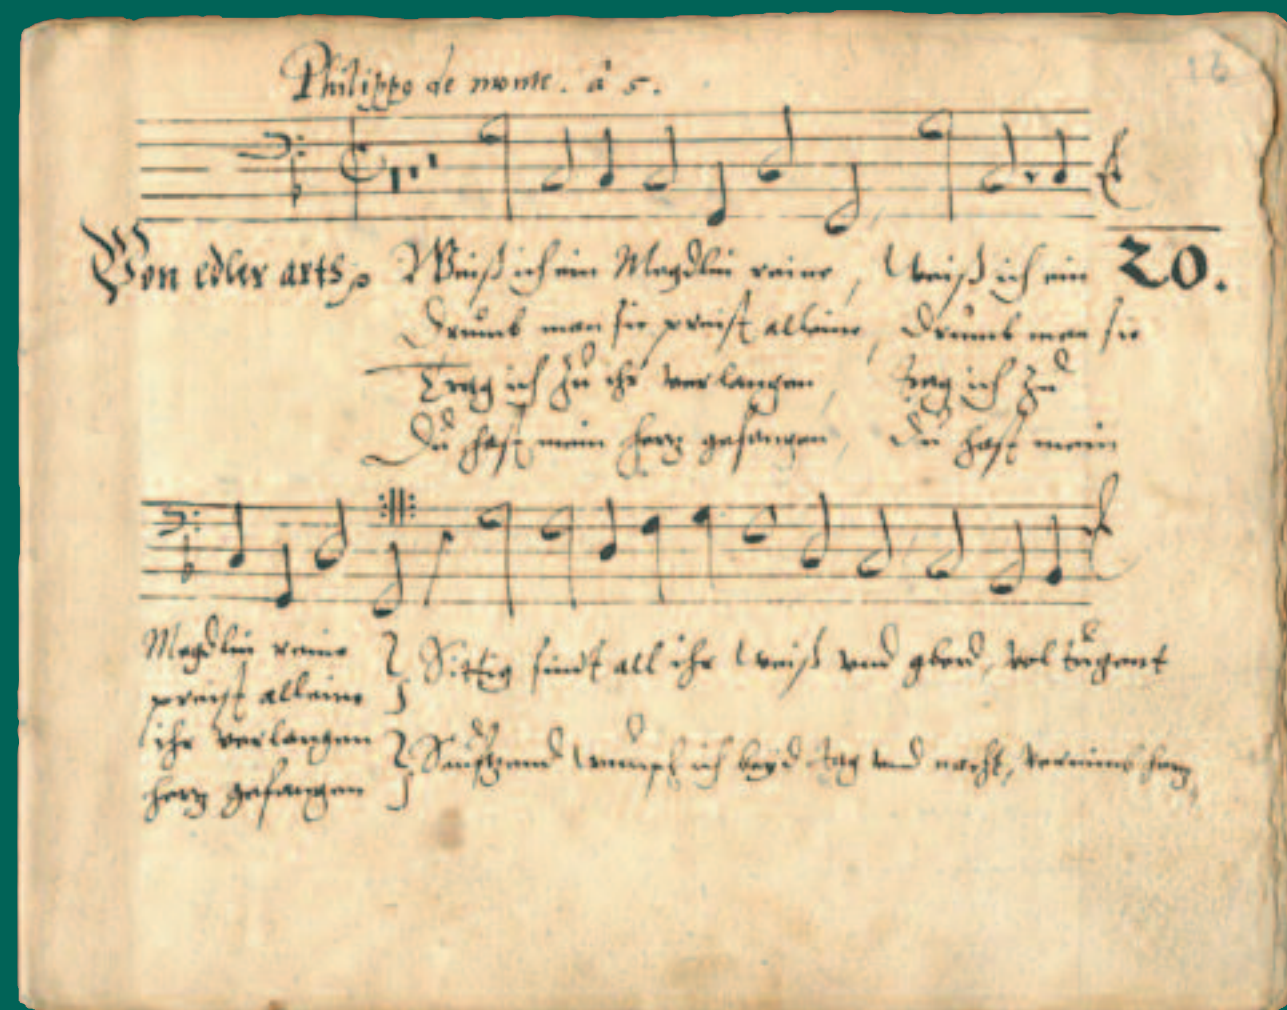 Philippo de monte. â 5.
16
Von edler arth,
Weiß ich ein Magdlin reine, Weiß ich ein
20.
Drumb man sie preist alleine, Drumb man sie
Trag ich zu ihr verlangen, trag ich zu
Du hast mein hertz gefangen, Du hast mein
Magdlin reine
preist alleine
ihr verlangen
hertz gefangen
Sittig sindt all ihr Weiß vnd gberd, vol tugent
wunsch ich beyd tag vnd nacht,